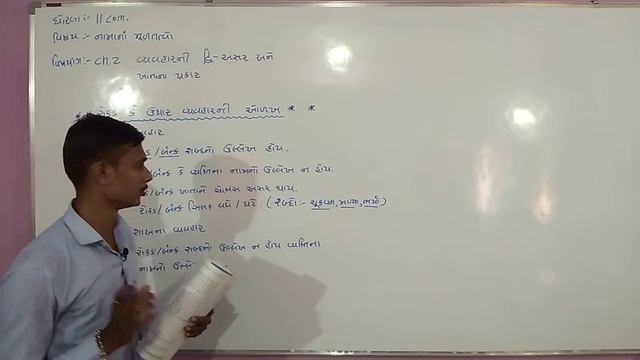 ધોરણ :- 11 com.
વિષય :- નામાનાં મૂળતત્વો
વિષયાંગ :- ch.2 વ્યવહારની દ્વિ-અસર અને
ખાતાના પ્રકાર
* * રોકડ કે ઉધાર વ્યવહારની ઓળખ * *
/બેન્ક શબ્દનો ઉલ્લેખ હોય.
/બેન્ક કે વ્યક્તિના નામનો ઉલ્લેખ ન હોય.
/બેન્ક ખાતાને ચોક્કસ અસર થાય.
રોકડ/બેન્ક સિલક વધે / ઘટે. (શબ્દો :- ચૂકવ્યા, મળ્યા, ભર્યા)
શાખના વ્યવહાર
રોકડ/બેન્ક શબ્દનો ઉલ્લેખ ન હોય વ્યક્તિના
નામનો